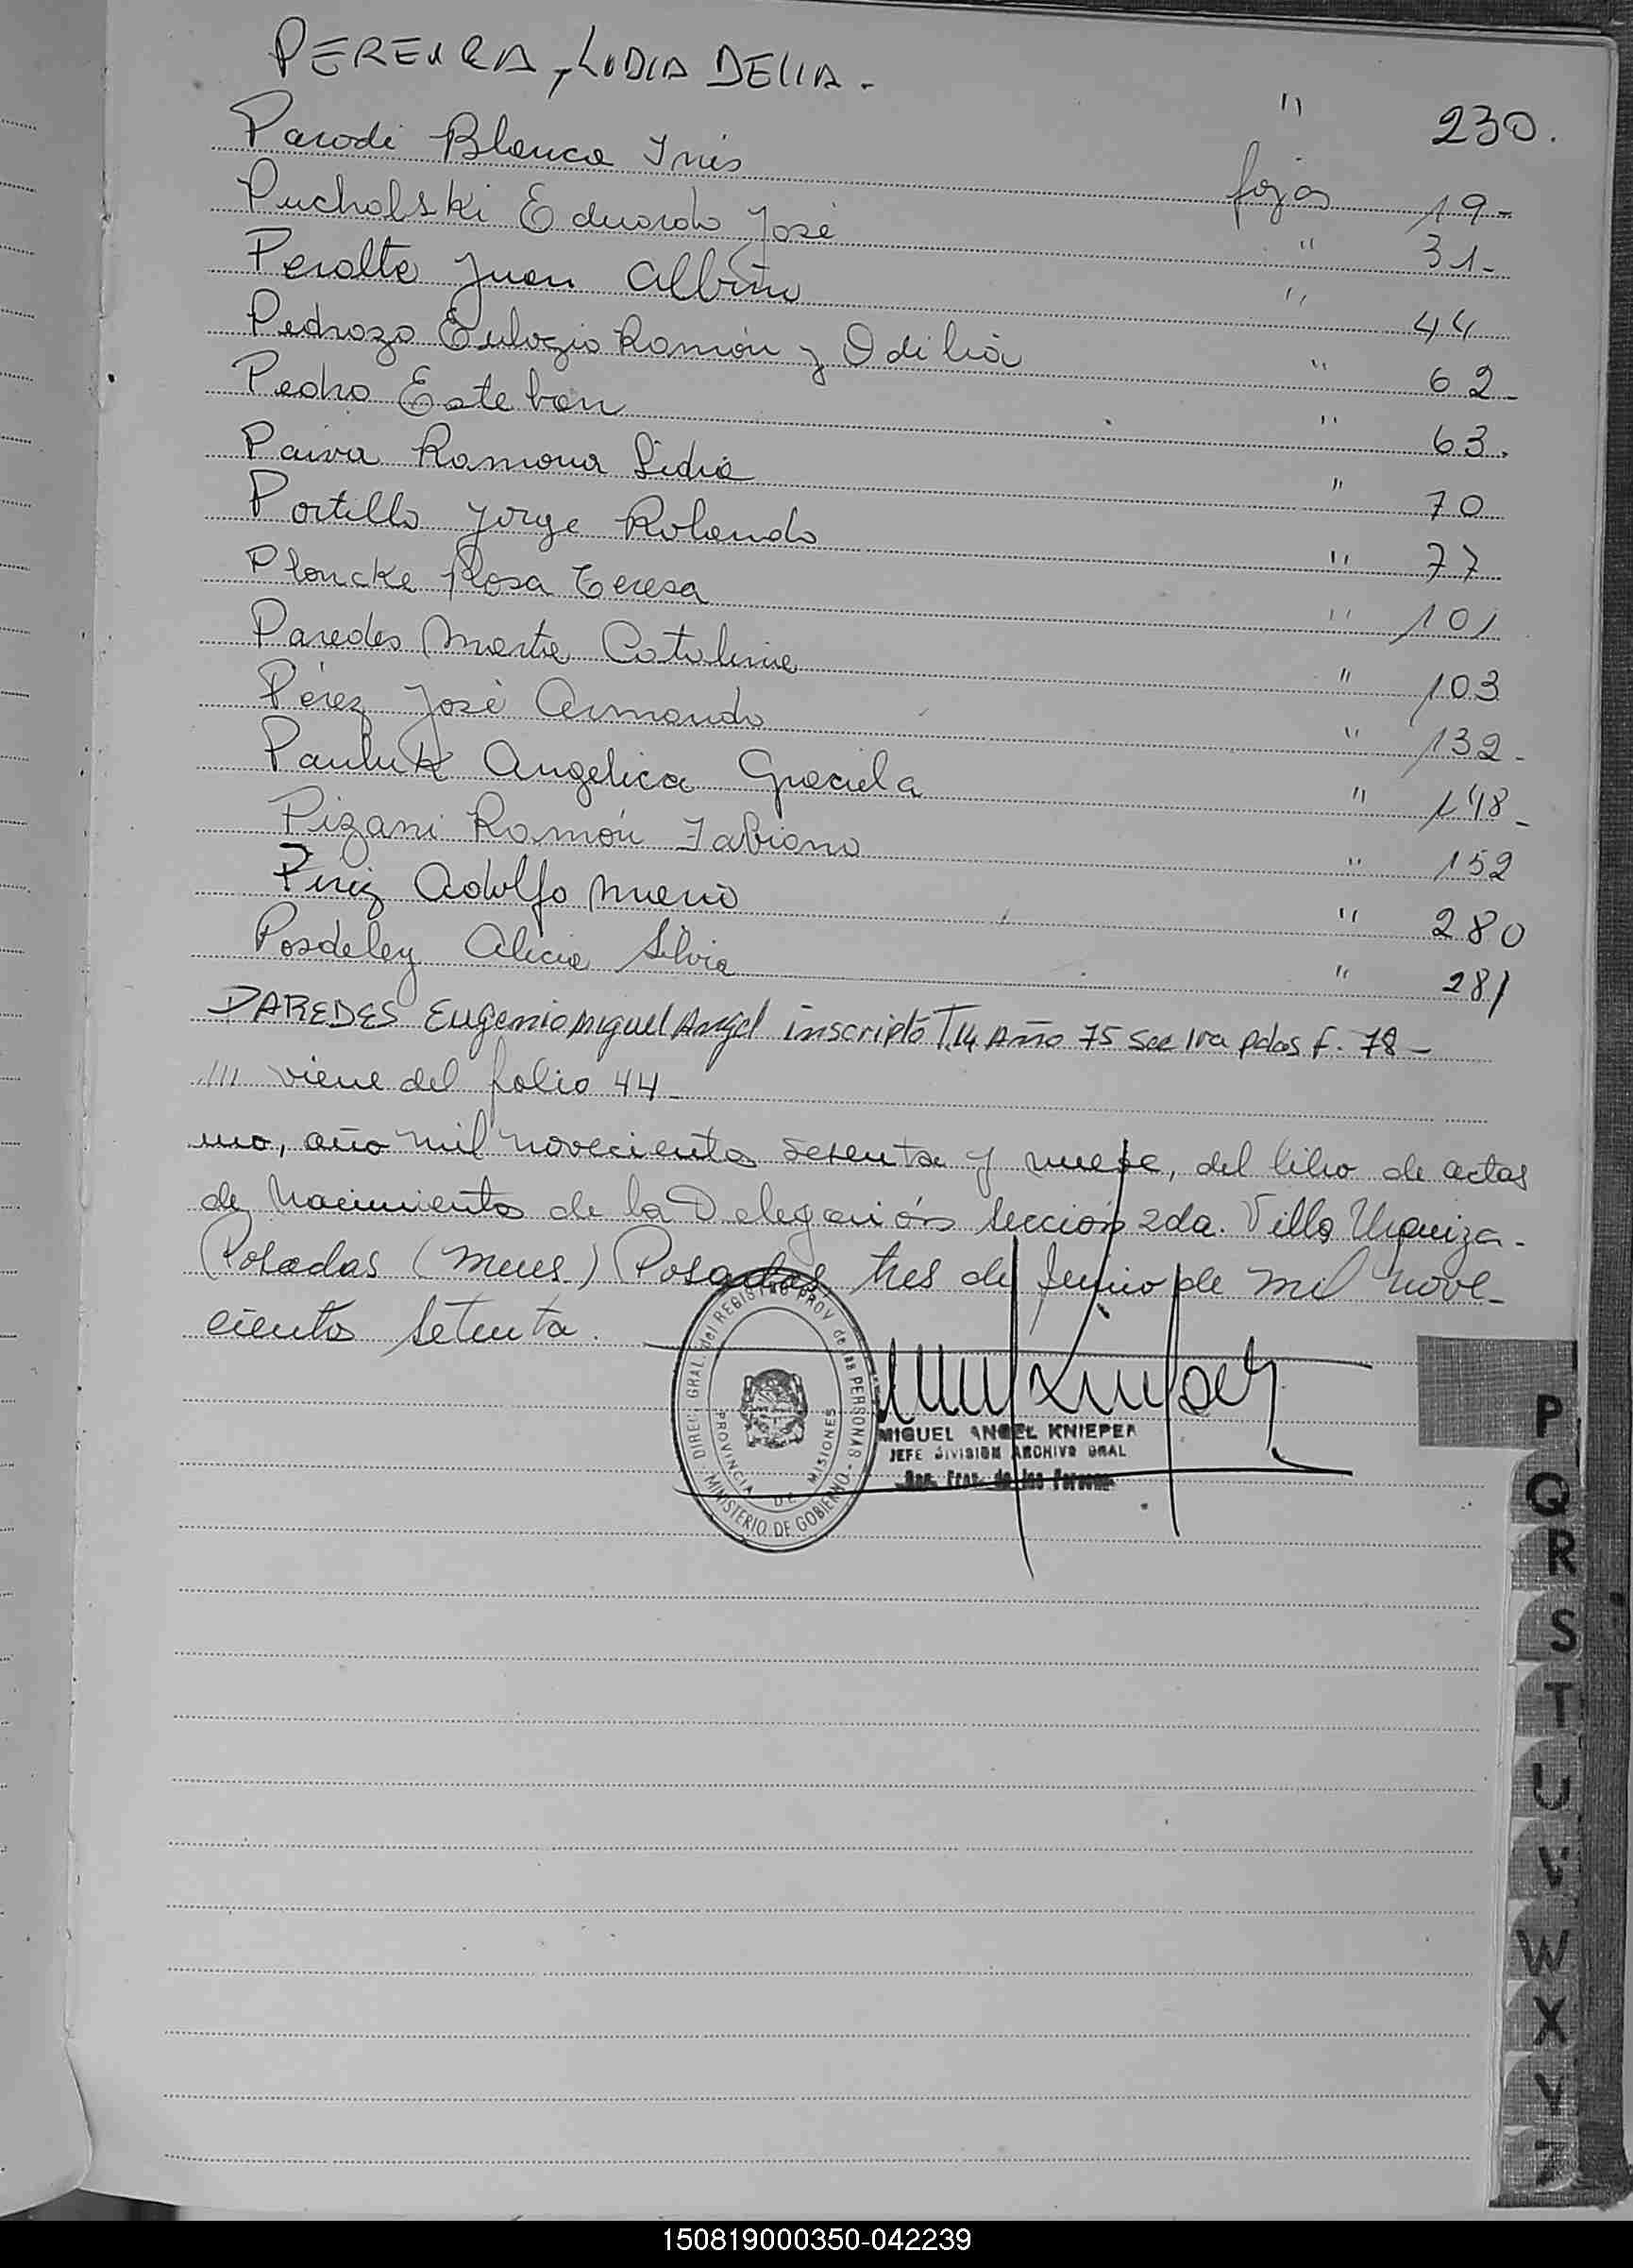 PEREIRA, LIDIA DELIA. " 230.
Parodi Blanca Inés fojas 19-
Pucholski Eduardo José " 31-
Peralta Juan Albino " 44
Pedrozo Eulogio Ramón y Odilia " 62-
Pedro Esteban " 63.
Paiva Ramona Lidia " 70
Portillo Jorge Rolando " 77
Ploncke Rosa Teresa " 101
Paredes Marta Catalina " 103
Pérez José Armando " 132-
Pauluk Angelica Graciela " 148-
Pizani Ramón Fabiano " 152
Adolfo " 280
Posdeley Alicia Silvia " 281
PAREDES Eugenio Miguel Angel inscripto T.14 Año 75 Sec 1ra pdas F. 78-
/// viene del folio 44-
uno, año mil novecientos sesenta y nueve, del libro de actas
de Nacimientos de la Delegación Sección 2da. Villa Urquiza-
Posadas (Mnes) Posadas, tres de de mil nove-
cientos setenta.
DIREC. GRAL. del REGISTRO PROV. de las PERSONAS - MINISTERIO DE GOBIERNO -
PROVINCIA DE MISIONES
MIGUEL ANGEL KNIEPER
JEFE DIVISION ARCHIVO GRAL
Reg. Prov. de las Personas
P
Q
R
S
T
U
V
W
X
Y
Z
150819000350-042239